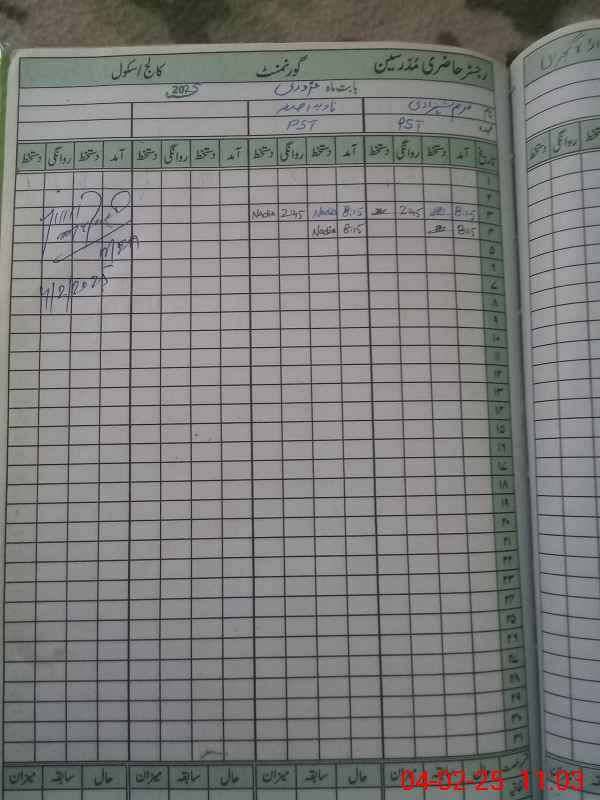 رجسٹر حاضری مُدرسین گورنمنٹ کالج اسکول
بابت ماہ فروری 2025
نام
عہدہ PST PST
تاریخ آمد دستخط روانگی دستخط آمد دستخط روانگی دستخط آمد دستخط روانگی دستخط آمد دستخط روانگی دستخط
۱
۲
۳ 8:15 2:45 8:15 Nadia 2:45 Nadia
۴ 8:15 8:15 Nadia
۵
۶
۷
۸
۹
۱۰
۱۱
۱۲
۱۳
۱۴
۱۵
۱۶
۱۷
۱۸
۱۹
۲۰
۲۱
۲۲
۲۳
۲۴
۲۵
۲۶
۲۷
۲۸
۲۹
۳۰
۳۱
4/2/2025
حال سابقہ میزان حال سابقہ میزان حال سابقہ میزان حال سابقہ میزان
04-02-25 11:03